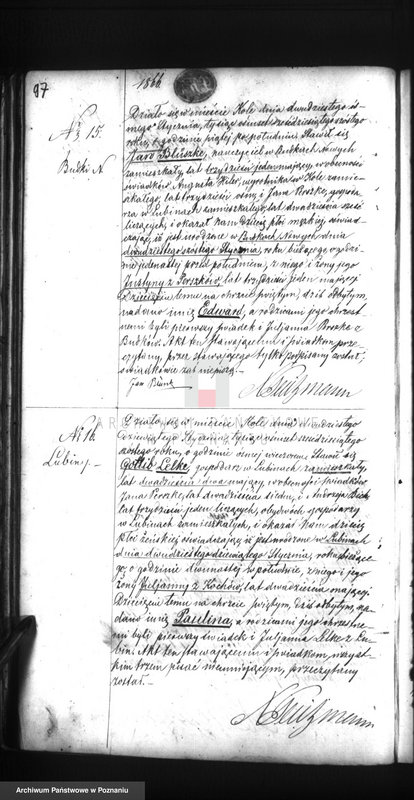 97
1866
№ 15.
Bulki N.
Działo się w mieście Kole dnia dwudziestego ós-
mego Stycznia, tysiąc ośmset sześćdziesiątego szóstego
roku, o godzinie piątej po południu. Stawił się
nauczyciel w Bulkach Nowych
zamieszkały, lat trzydzieści jeden mający, w obecności
świadków, Augusta wyrobnika w Kole zamie-
szkałego, lat trzydzieści ośm, i Jana
w Lubinach zamieszkałego, lat dwadzieścia sześć
liczących, i okazał nam dziecię płci męzkiej, oświad-
czając iż jest urodzone w Bulkach Nowych dnia
dwudziestego szóstego Stycznia, roku bieżącego, o godzi-
nie jedenastej przed południem, z niego i żony jego
Justyny z lat trzydzieści jeden mającej.
Dziecięciu temu na chrzcie świętym, dziś odbytym,
nadano imię Edward, a rodzicami jego chrzest-
nemi byli pierwszy świadek i Juljanna z
Bulków. Akt ten stawającemu i świadkom prze-
czytany, przez stawającego tylko podpisany został,
świadkowie zaś niepiszą.
№ 16.
Lubiny.
Działo się w mieście Kole dnia dwudziestego
dziewiątego Stycznia, tysiąc ośmset sześćdziesiątego
szóstego roku, o godzinie ósmej wieczorem. Stawił się
Gottlib Lelke, gospodarz w Lubinach zamieszkały,
lat dwadzieścia dwa mający, w obecności świadków,
Jana lat dwadzieścia siedm, i
lat trzydzieści jeden liczących, obydwóch gospodarzy
w Lubinach zamieszkałych, i okazał nam dziecię
płci żeńskiej oświadczając iż jest urodzone w Lubinach
dnia dwudziestego dziewiątego Stycznia, roku bieżące-
go, o godzinie dwunastej w południe, z niego i jego
żony Juljanny z Kochów, lat dwadzieścia mającej.
Dziecięciu temu na chrzcie świętym, dziś odbytym, na-
dano imię Paulina, a rodzicami jego chrzestne-
mi byli pierwszy świadek i Juljanna Lelke z Lu-
bin. Akt ten stawającemu i świadkom, wszyst-
kim trzem pisać nieumiejącym, przeczytany
został.
Archiwum Państwowe w Poznaniu